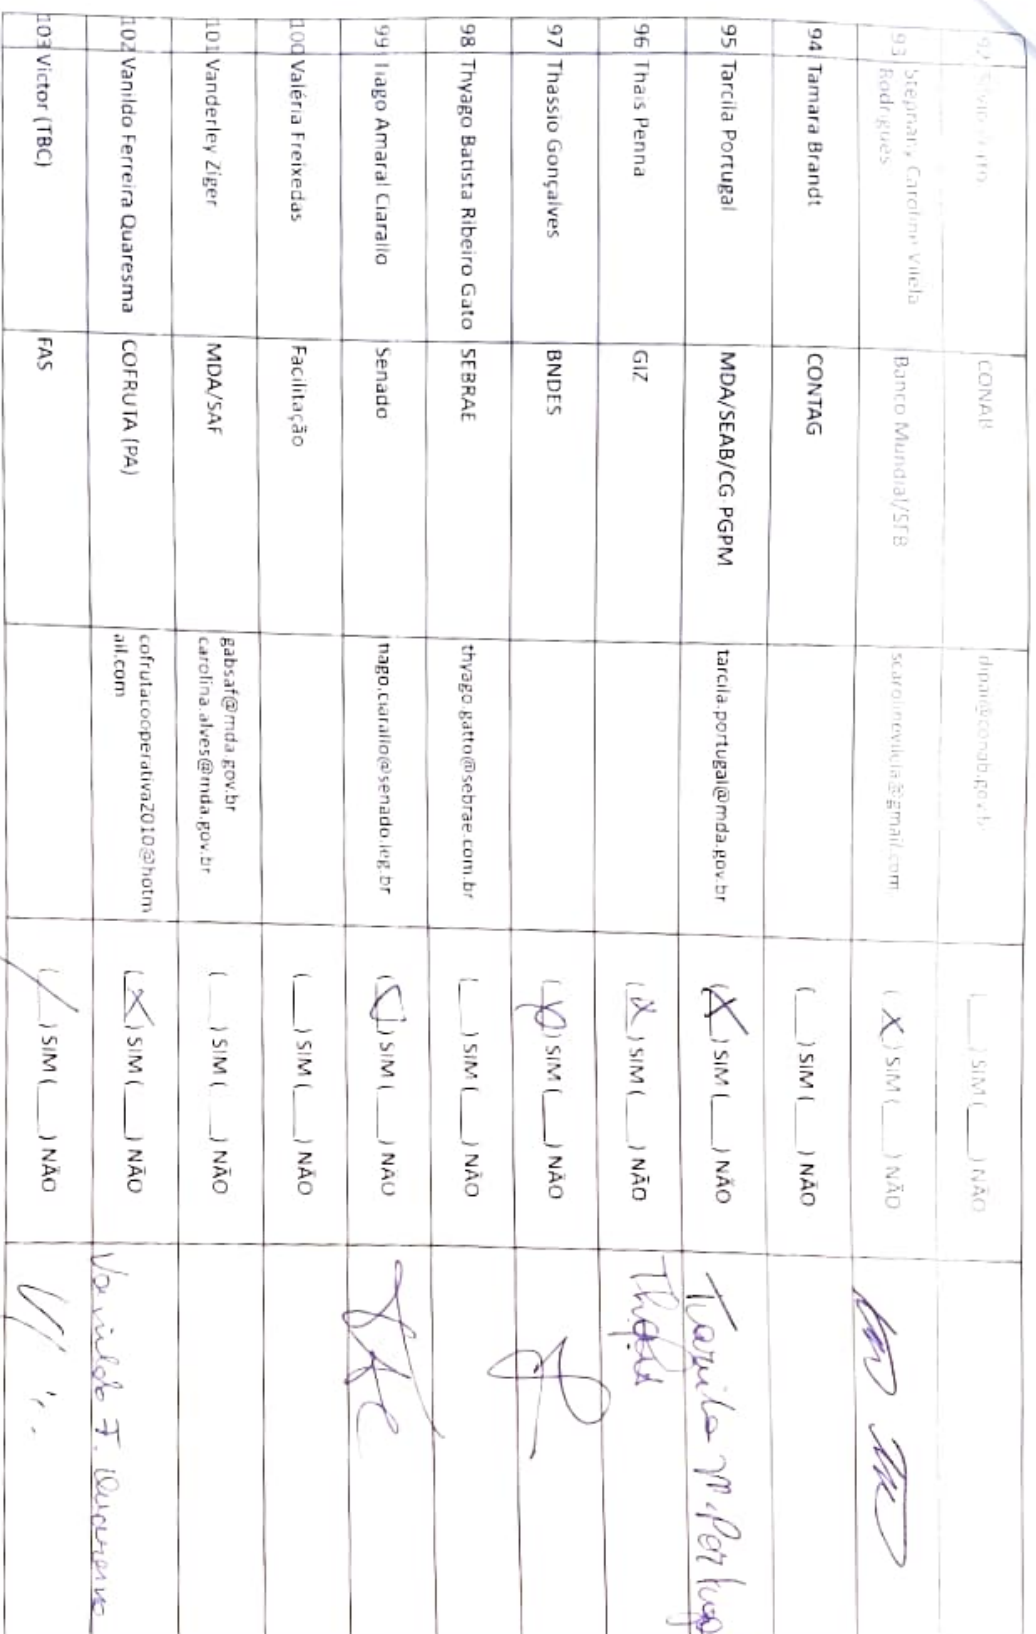 92 CONAB (___) SIM (___) NÃO
93 Stephany Caroline Vilela Rodrigues Banco Mundial/SFB scarolinevilela@gmail.com (X) SIM (___) NÃO
94 Tamara Brandt CONTAG (___) SIM (___) NÃO
95 Tarcila Portugal MDA/SEAB/CG-PGPM tarcila.portugal@mda.gov.br (X) SIM (___) NÃO Tarcila M. Portugal
96 Thais Penna GIZ (X) SIM (___) NÃO Thais
97 Thassio Gonçalves BNDES (X) SIM (___) NÃO
98 Thyago Batista Ribeiro Gato SEBRAE thyago.gatto@sebrae.com.br (___) SIM (___) NÃO
99 Tiago Amaral Ciarallo Senado tiago.ciarallo@senado.leg.br (___) SIM (___) NÃO
100 Valéria Freixedas Facilitação (___) SIM (___) NÃO
101 Vanderley Ziger MDA/SAF gabsaf@mda.gov.br
carolina.alves@mda.gov.br (___) SIM (___) NÃO
102 Vanildo Ferreira Quaresma COFRUTA (PA) cofrutacooperativa2010@hotm
ail.com (X) SIM (___) NÃO Vanildo F. Quaresma
103 Victor (TBC) FAS (/) SIM (___) NÃO